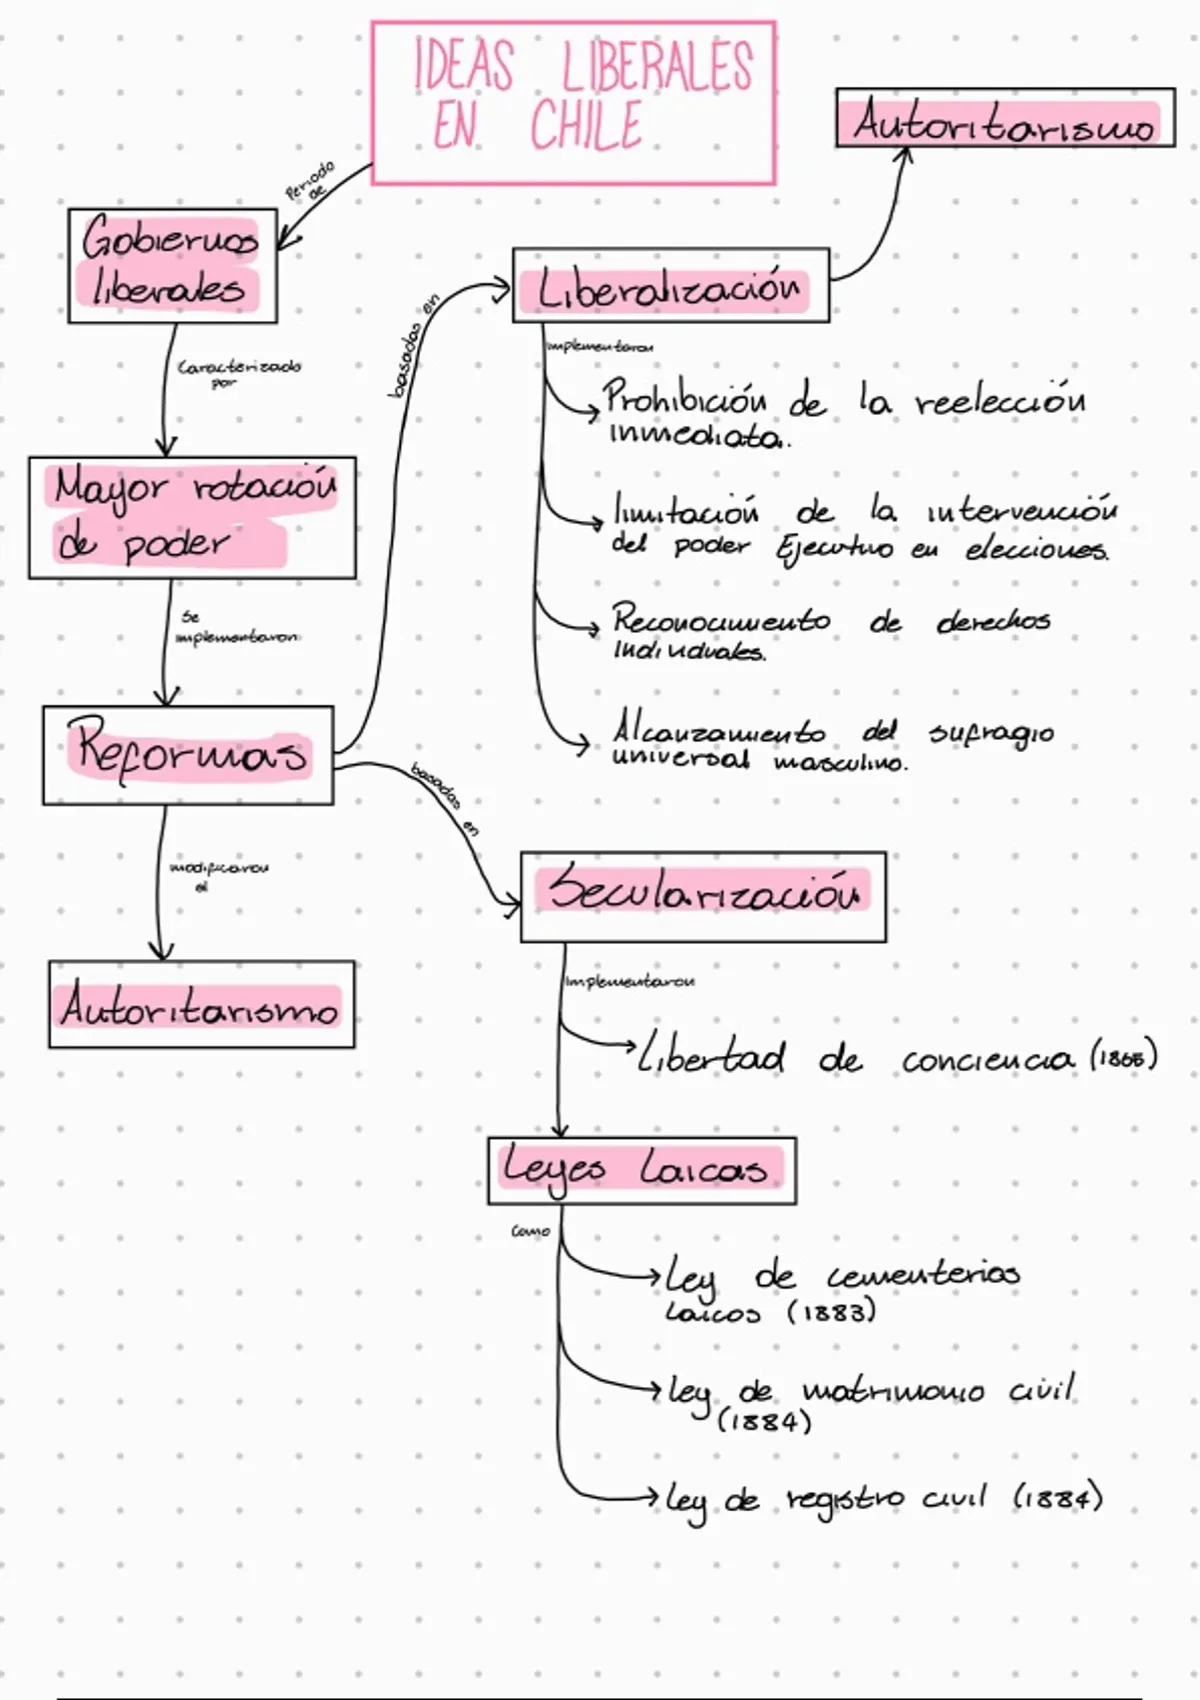 IDEAS LIBERALES
EN CHILE
Autoritarismo
Periodo
de
Gobiernos
liberales
Caracterizado
por
Mayor rotación
de poder
Se
implementaron
Reformas
modificaron
el
Autoritarismo
basadas en
Liberalización
implementaron
Prohibición de la reelección
inmediata.
limitación de la intervención
del poder Ejecutivo en elecciones.
Reconocimiento de derechos
individuales.
Alcanzamiento del sufragio
universal masculino.
basadas en
Secularización
implementaron
Libertad de conciencia (1865)
Leyes Laicas
como
Ley de cementerios
Laicos (1883)
ley de matrimonio civil
(1884)
ley de registro civil (1884)